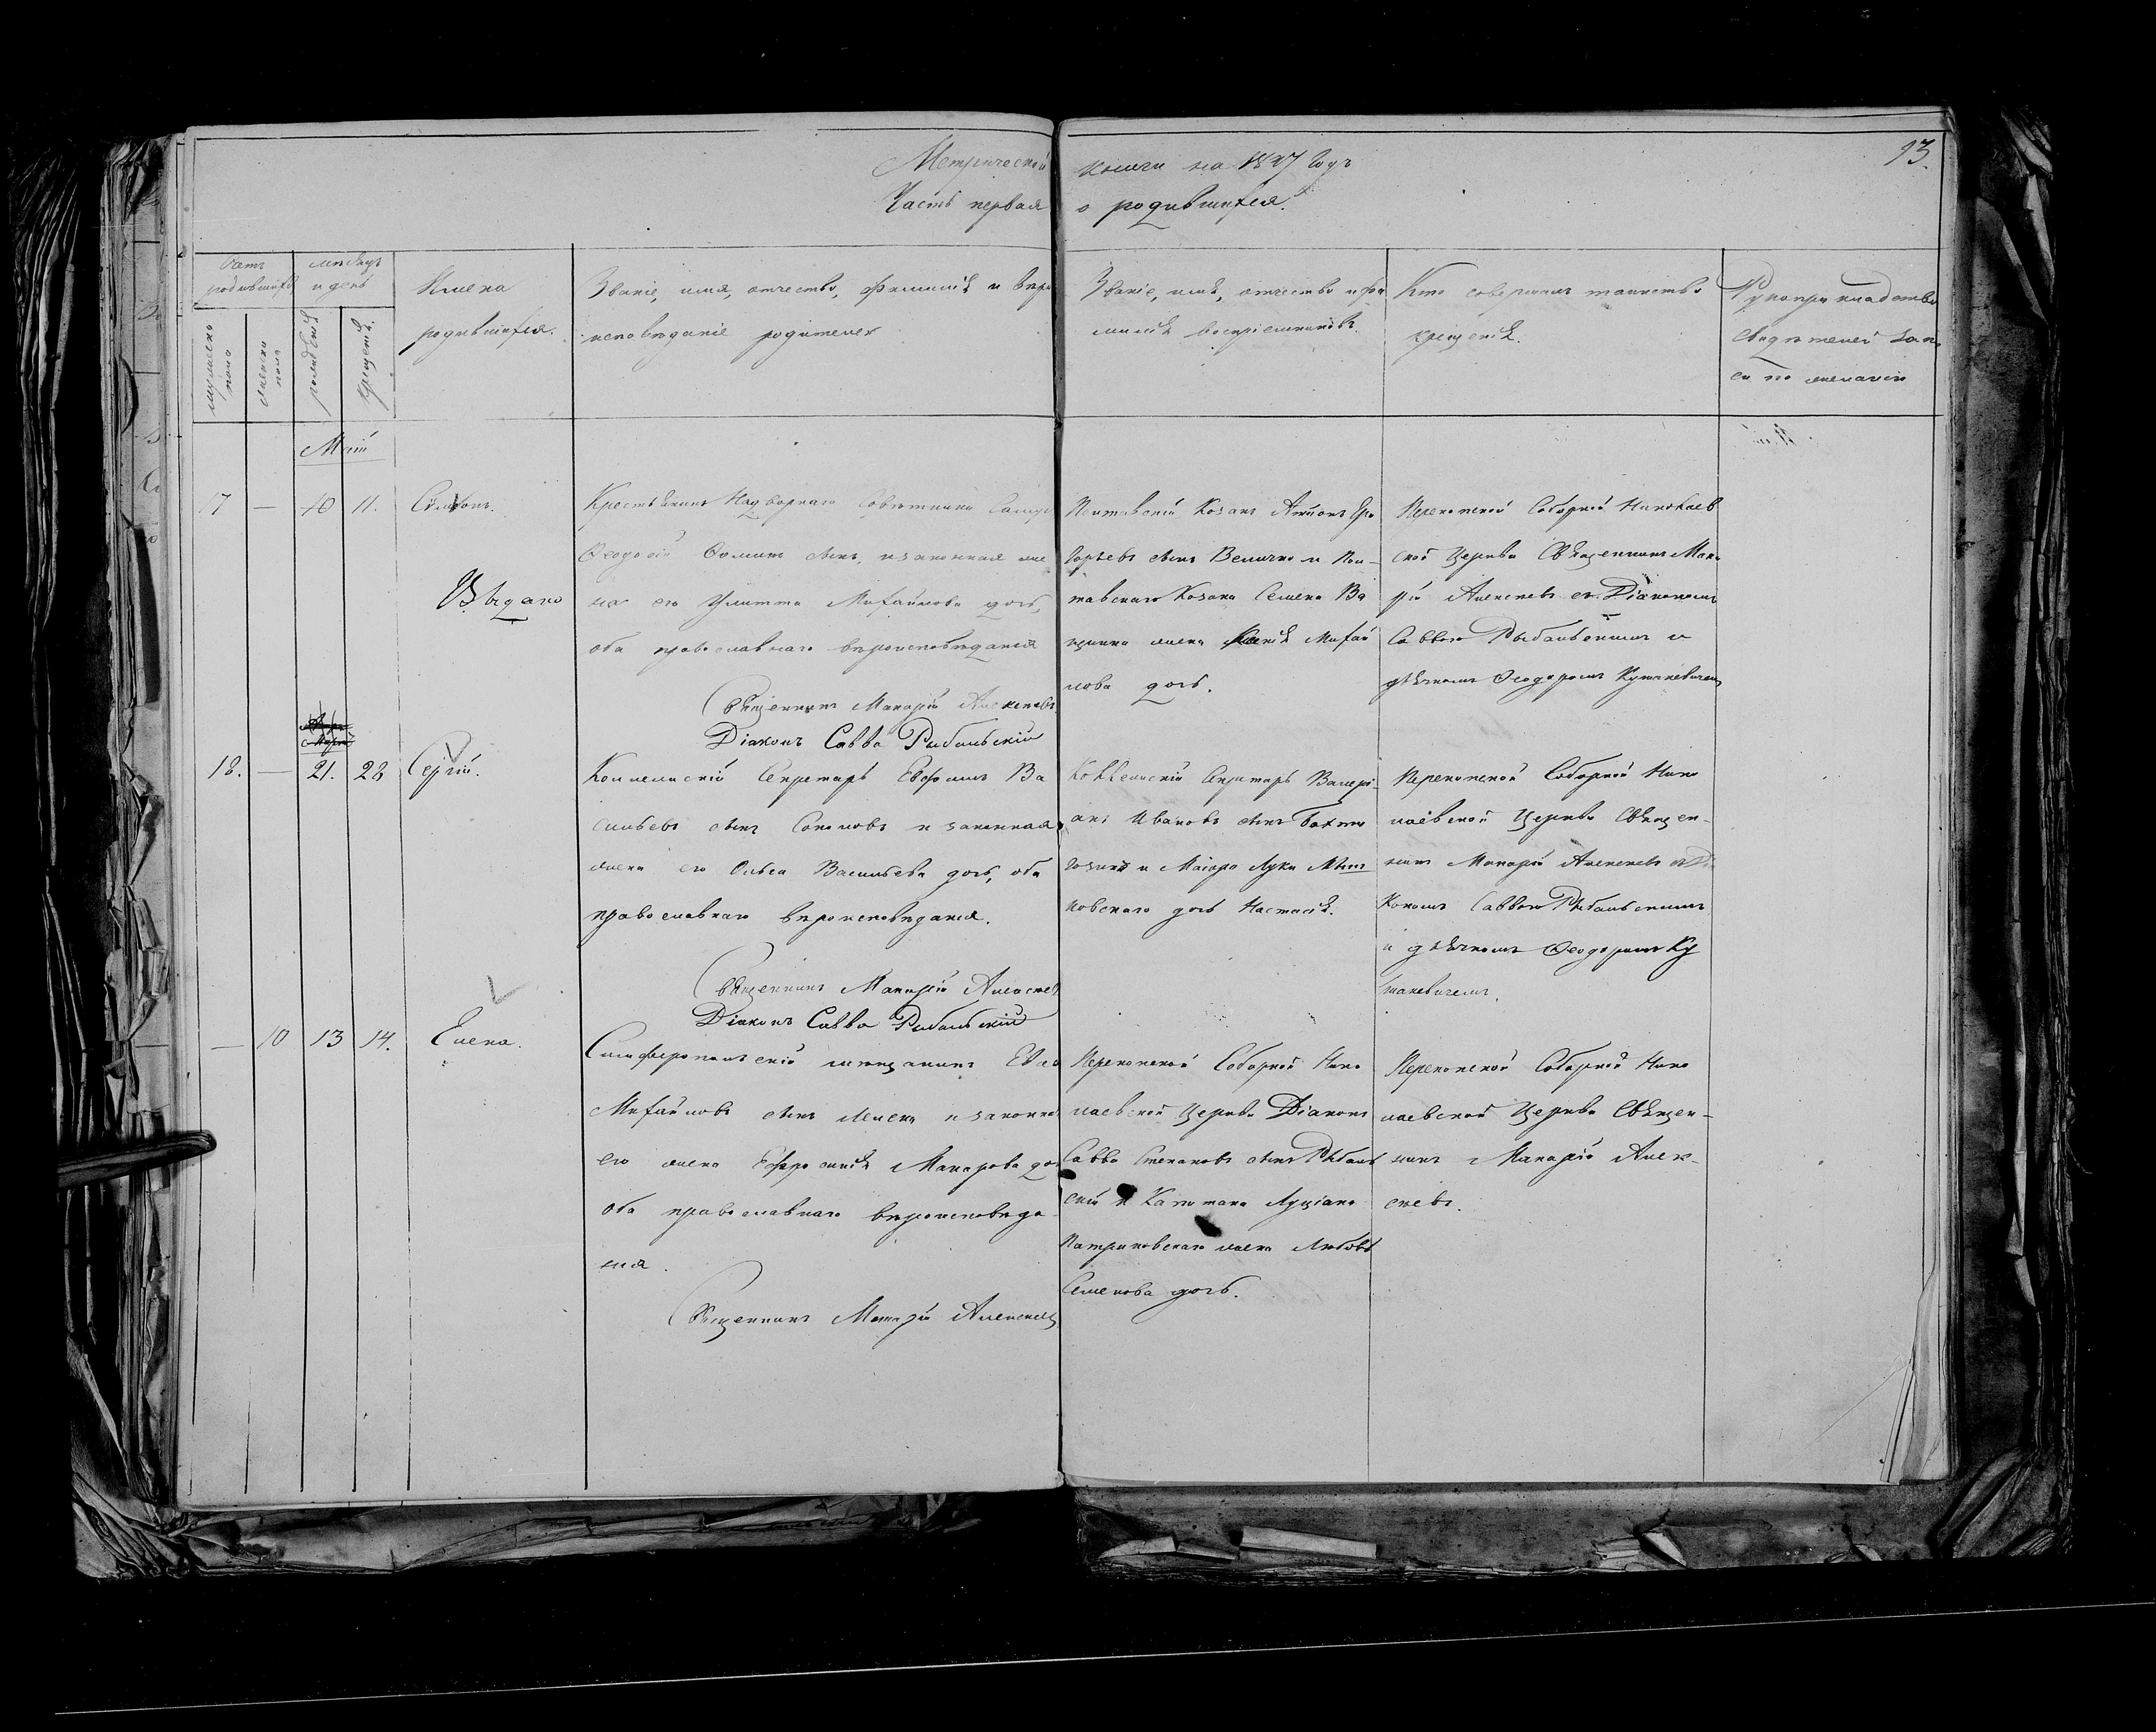 93.
Метрической книги на 1847 годъ
Часть первая о родившихся.
Счетъ родившихся
мѣсяцъ и день
мужеска пола
женска пола
рожденія
крещенія.
Имена
родившихся.
Званіе, имя, отчество, фамилія и вѣро
исповѣданіе родителей
Званіе, имя, отчество и фа
милія воспріемниковъ.
Кто совершилъ таинство
крещенія.
Рукоприкладство
свидѣтелей запи
си по желанію
Май
17 — 10 11. Симеонъ.
Выдано
Крестьянинъ Надворнаго Совѣтника
Феодосій сынъ, и законная же
на его Улитта Михайлова дочь,
оба православнаго вѣроисповѣданія
Священникъ Макарій Алексѣевъ.
Діаконъ Савва Рыбальскій
Полтавскій Козакъ Антонъ Гри
горьевъ сынъ Величко и Пол-
тавскаго Козака Семена Ва
щенка жена Михай
лова дочь.
Перекопской Соборной Николаев
ской Церкви Священникъ Мака
рій Алексѣевъ съ Діакономъ
Саввою Рыбальскимъ и
дьячкомъ Феодоромъ Кутаневичемъ
18. — 21. 28 Сергій.
Коллежскій Секретарь Евфимъ Ва
сильевъ сынъ Соколовъ и законная
жена его Ольга Васильева дочь, оба
православнаго вѣроисповѣданія.
Священникъ Макарій Алексѣевъ
Діаконъ Савва Рыбальскій
Коллежскій Секретарь Валері-
анъ Ивановъ сынъ
и Маіора Луки
ковскаго дочь Настасія.
Перекопской Соборной Нико
лаевской Церкви Священ-
никъ Макарій Алексѣевъ съ Діа
кономъ Саввою Рыбальскимъ
и дьячкомъ Феодоромъ Ку
таневичемъ.
— 10 13 14. Елена.
Симферопольскій мѣщанинъ
Михайловъ сынъ и законная
его жена Ефросинія Макарова дочь
оба православнаго вѣроисповѣда
нія.
Священникъ Макарій Алексѣевъ
Перекопской Соборной Нико
лаевской Церкви Діаконъ
Савва Степановъ сынъ Рыбаль
скій и Капитана Луціана
Патриковскаго жена Любовь
Семенова дочь.
Перекопской Соборной Нико
лаевской Церкви Священ-
никъ Макарій Алек-
сѣевъ.